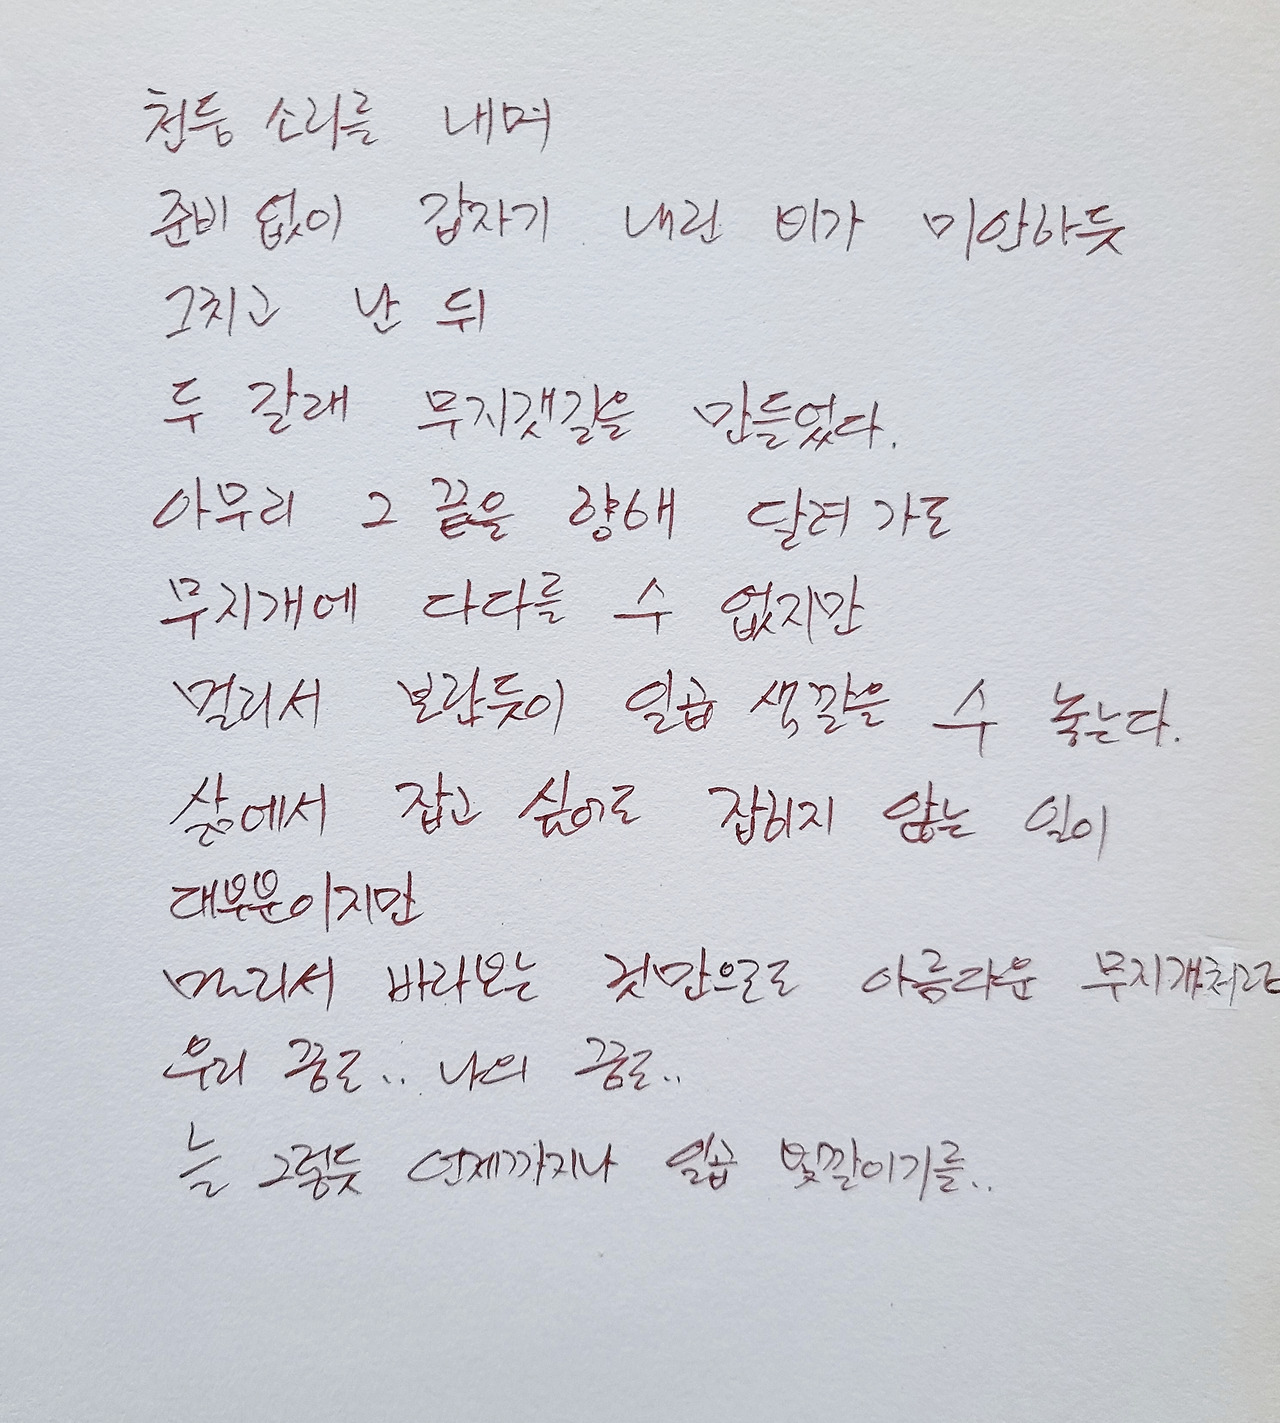 천둥 소리를 내며
준비 없이 갑자기 내린 비가 미안하듯
그치고 난 뒤
두 갈래 무지갯길을 만들었다.
아무리 그 끝을 향해 달려 가도
무지개에 다다를 수 없지만
멀리서 보란듯이 일곱 색깔을 수 놓는다.
삶에서 잡고 싶어도 잡히지 않는 일이
대부분이지만
멀리서 바라보는 것만으로도 아름다운 무지개처럼
우리 꿈도.. 나의 꿈도..
늘 그렇듯 언제까지나 일곱 빛깔이기를..